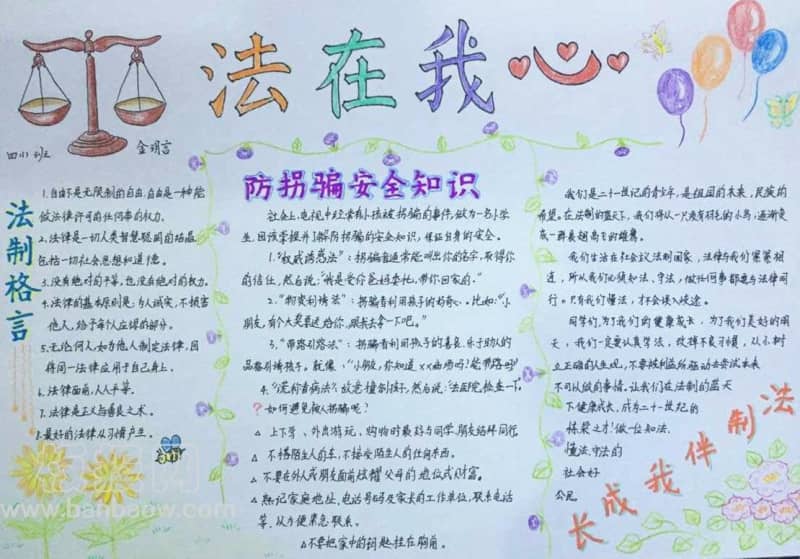 法在我心
四(1)班
金玥言
法制格言
1.自由不是无限制的自由,自由是一种能
做法律许可的任何事的权力。
2.法律是一切人类智慧聪明的结晶
包括一切社会思想和道德。
3.没有绝对的平等,也没有绝对的权力。
4.法律的基本原则是:为人诚实,不损害
他人,给予每个人应得的部分。
5.无论何人,如为他人制定法律,应
将同一法律应用于自己身上。
6.法律面前,人人平等。
7.法律是正义与善良之术。
8.最好的法律从习惯产生。
防拐骗安全知识
社会上,电视中经常有小孩被拐骗的事件,做为一名小学
生,应该掌握并了解防拐骗的安全知识,保证自身的安全。
1."权威诱惑法":拐骗者通常能叫出你的名字,取得你
的信任,然后说:"我是受你爸妈委托,带你回家的."
2."物资利诱法":拐骗者利用孩子的好奇心。比如:"小
朋友,有个大奖要送给你,跟我去拿一下吧。"
3."带路引路法":拐骗者利用孩子的善良、乐于助人的
品格引诱孩子。就像:"小朋友,你知道××幽场吗?能带路吗?
4."谎称看病法":故意撞倒孩子,然后说:"去医院检查一下。
?如何避免被人拐骗呢?
△上下学、外出游玩、购物时最好与同学、朋友结伴同行
△不搭陌生人的车,不接受陌生人的任何东西。
△不要在外人或朋友面前炫耀父母的地位或财富。
△熟记家庭地址,电话号码及家长的工作单位,联系电话
等,以方便紧急联系。
△不要把家中的钥匙挂在胸前。
我们是二十一世纪的青少年,是祖国的未来,民族的
希望。在法制的蓝天下,我们将从一只没有羽毛的小鸟,逐渐变
成一群展翅高飞的雄鹰。
我们生活在社会主义法制国家,法律与我们紧紧相
连,所以我们必须知法、守法,做任何事都要与法律同
行。只有我们懂法,才会误入歧途。
同学们,为了我们的健康成长,为了我们美好的明
天,我们一定要认真学法,改掉不良习惯,从小树
立正确的人生观,不要被利益所驱动去尝试本来
不可以做的事情,让我们在法制的蓝天
下健康成长,成为二十一世纪的
栋梁之才!做一位知法、
懂法、守法的
社会好
公民
法制伴我成长
www.banbaow.com